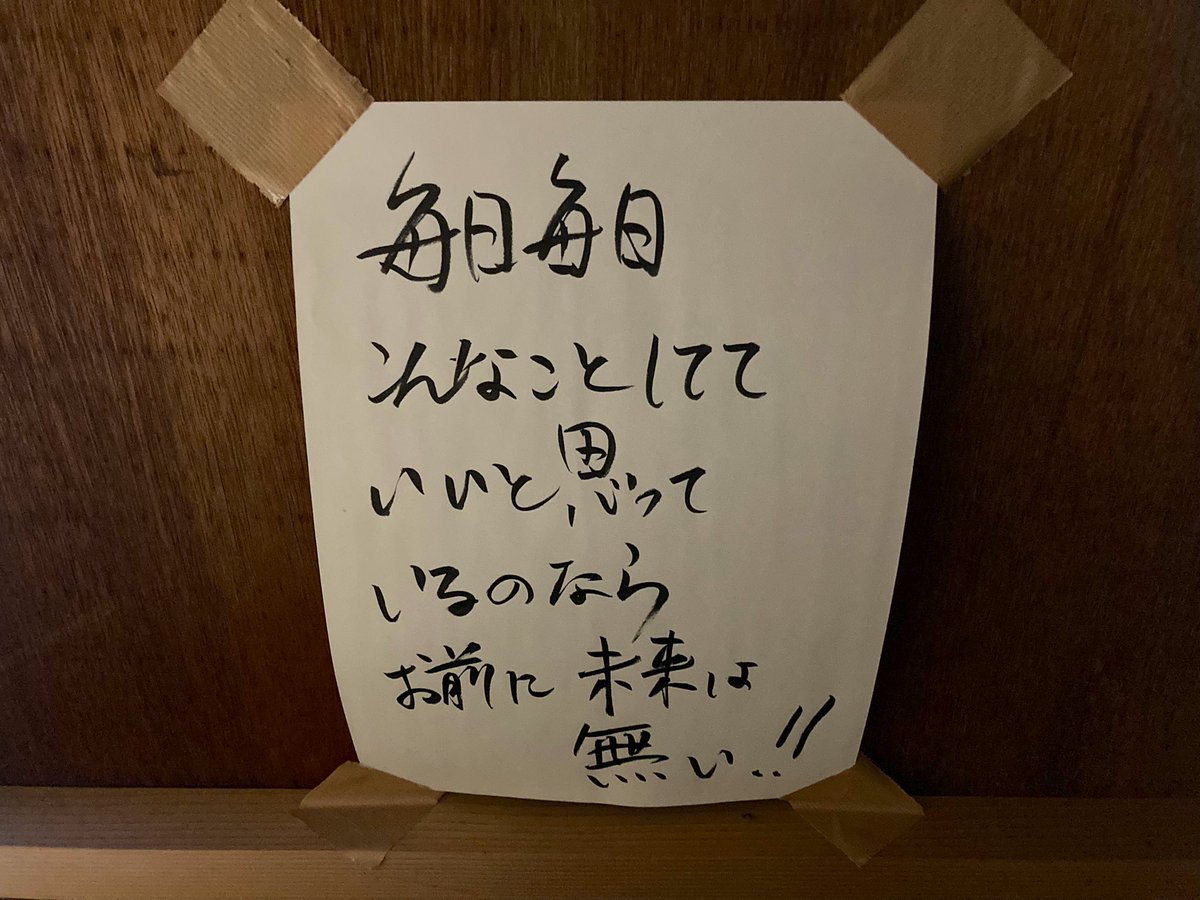 毎日毎日
そんなことしてて
いいと思って
いるのなら
お前に未来は
無い..!!